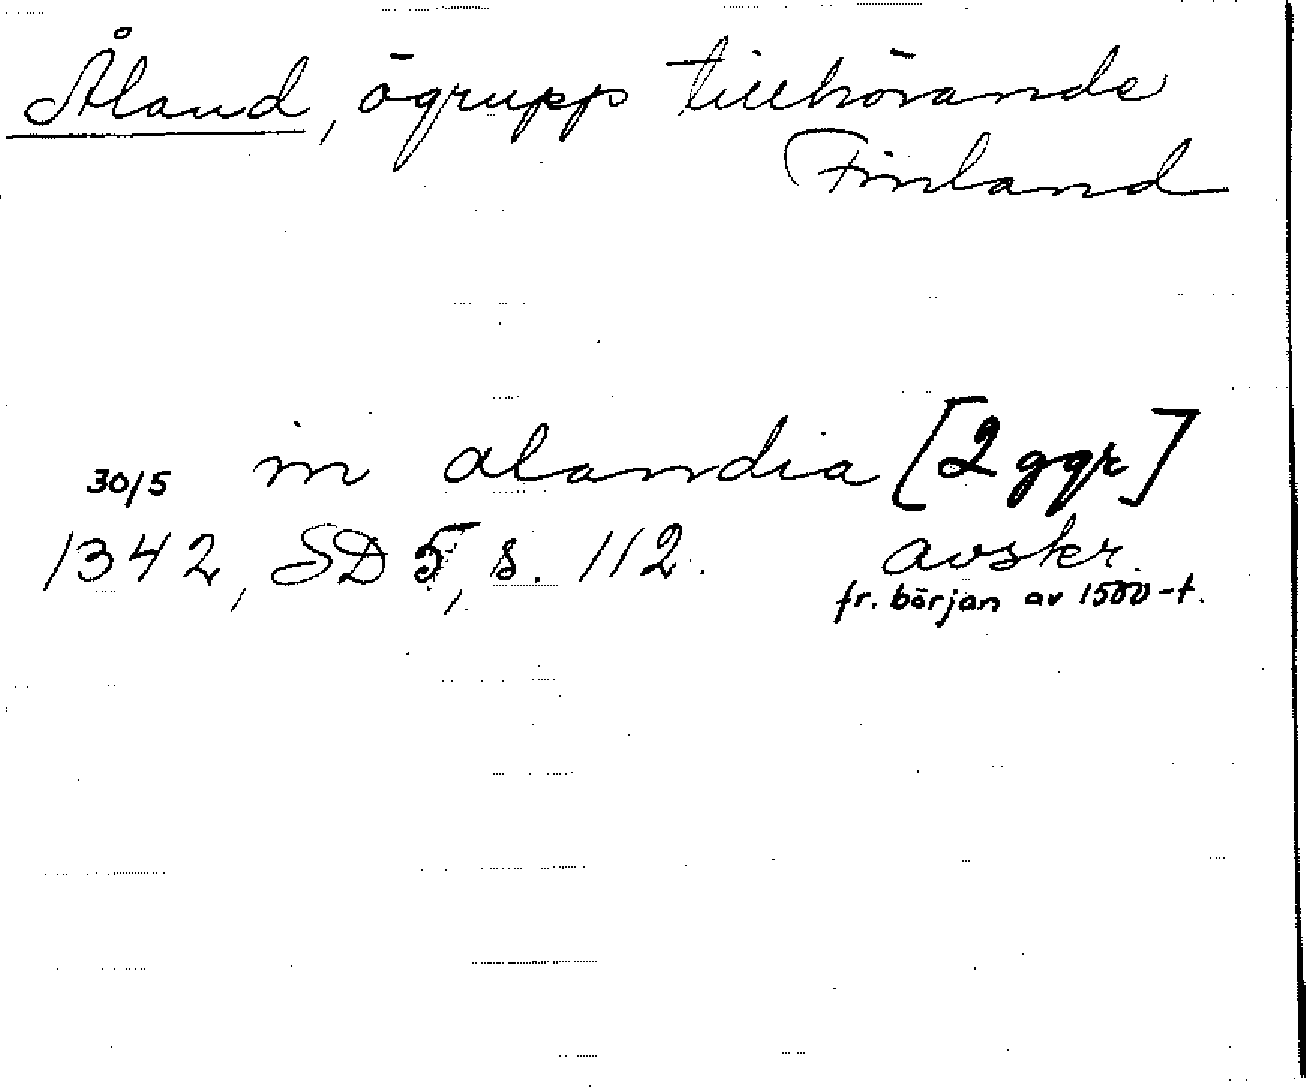 Åland, ögrupp tillhörande
Finland
30/5 in alandia [2 ggr]
1342, SD 5, s. 112. avskr.
fr. början av 1500-t.